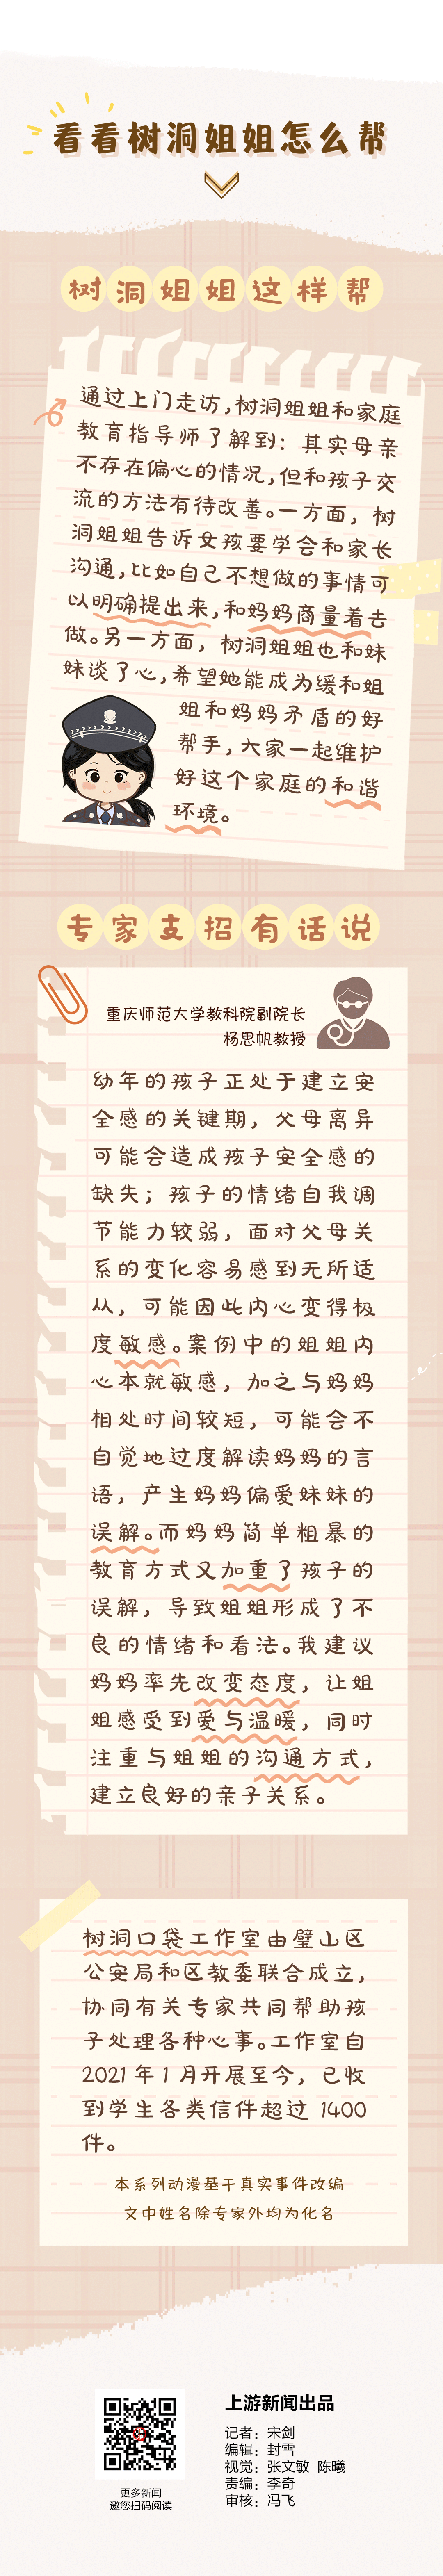 看看树洞姐姐怎么帮
树洞姐姐这样帮
通过上门走访,树洞姐姐和家庭
教育指导师了解到：其实母亲
不存在偏心的情况,但和孩子交
流的方法有待改善。一方面，树
洞姐姐告诉女孩要学会和家长
沟通,比如自己不想做的事情可
以明确提出来,和妈妈商量着去
做。另一方面，树洞姐姐也和妹
妹谈了心,希望她能成为缓和姐
姐和妈妈矛盾的好
帮手,大家一起维护
好这个家庭的和谐
环境。
专家支招有话说
重庆师范大学教科院副院长
杨思帆教授
幼年的孩子正处于建立安
全感的关键期，父母离异
可能会造成孩子安全感的
缺失；孩子的情绪自我调
节能力较弱，面对父母关
系的变化容易感到无所适
从，可能因此内心变得极
度敏感。案例中的姐姐内
心本就敏感，加之与妈妈
相处时间较短，可能会不
自觉地过度解读妈妈的言
语，产生妈妈偏爱妹妹的
误解。而妈妈简单粗暴的
教育方式又加重了孩子的
误解，导致姐姐形成了不
良的情绪和看法。我建议
妈妈率先改变态度，让姐
姐感受到爱与温暖，同时
注重与姐姐的沟通方式，
建立良好的亲子关系。
树洞口袋工作室由璧山区
公安局和区教委联合成立，
协同有关专家共同帮助孩
子处理各种心事。工作室自
2021 年 1 月开展至今，已收
到学生各类信件超过 1400
件。
本系列动漫基于真实事件改编
文中姓名除专家外均为化名
上游新闻出品
记者：宋剑
编辑：封雪
视觉：张文敏 陈曦
责编：李奇
审核：冯飞
更多新闻
邀您扫码阅读